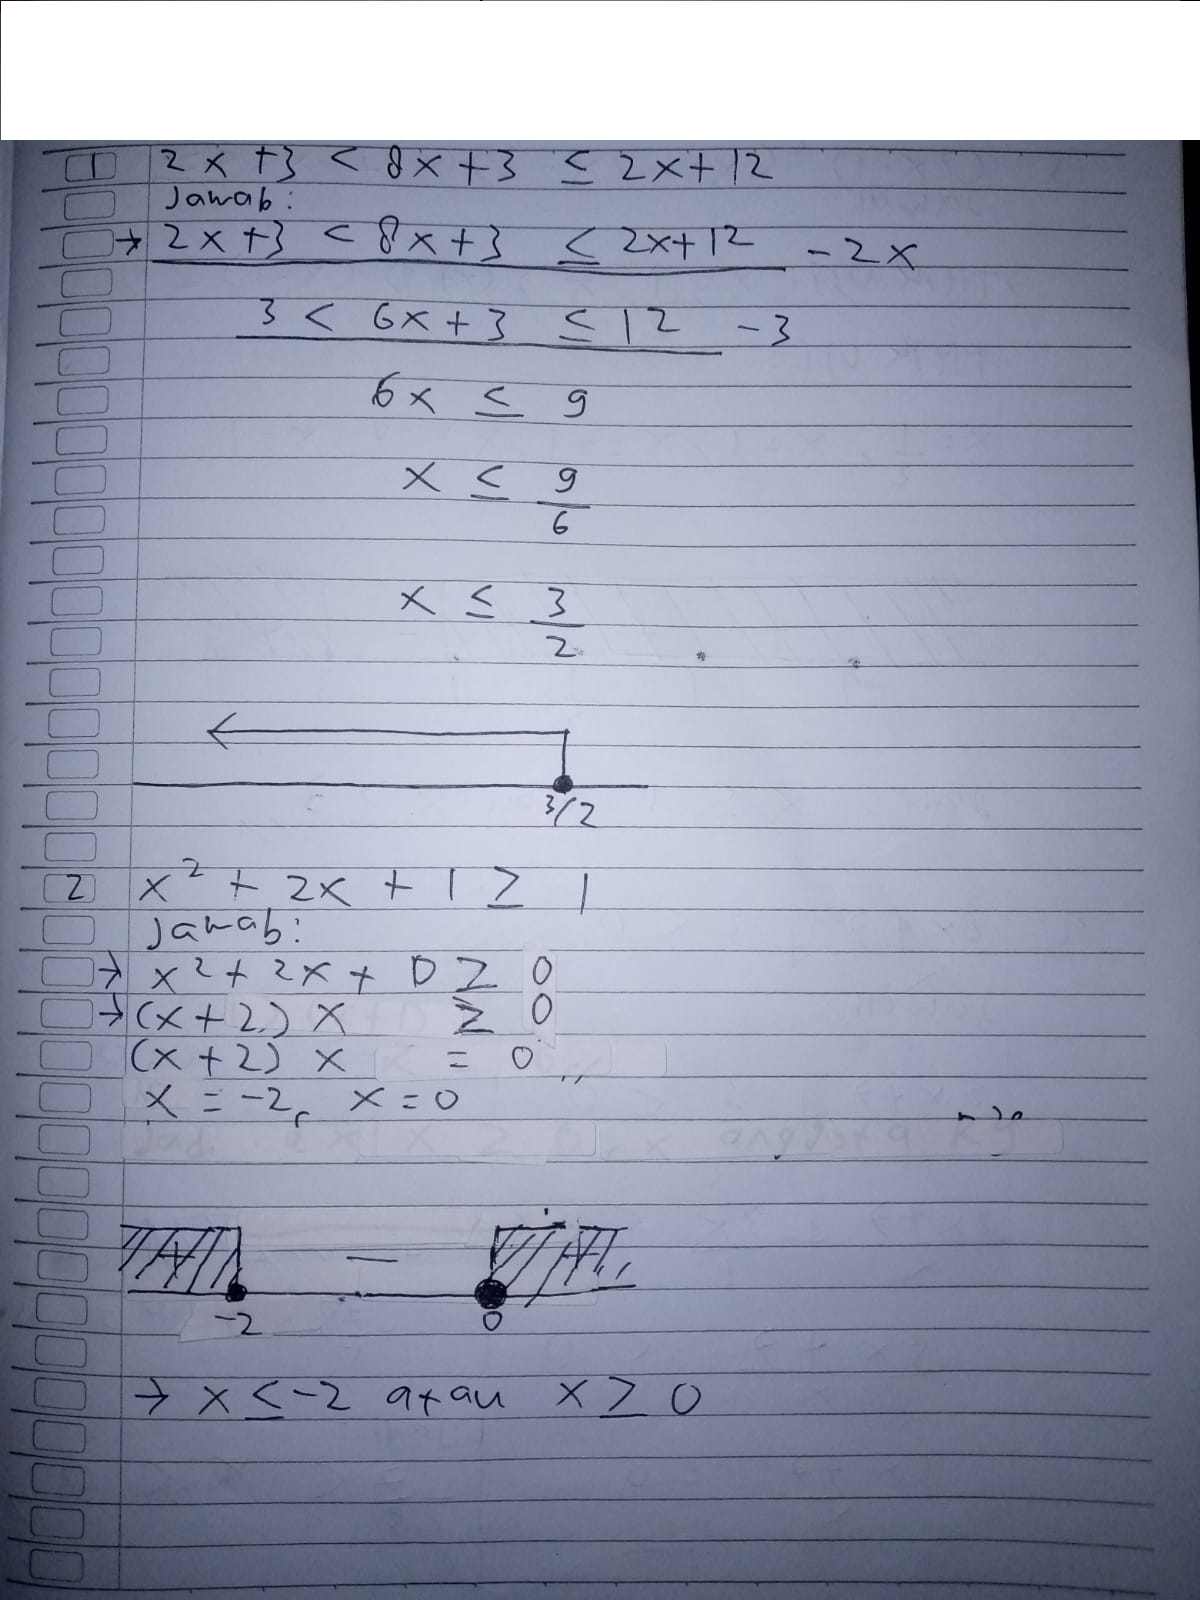 1 2x+3 < 8x+3 ≤ 2x+12
Jawab:
→ 2x+3 < 8x+3 ≤ 2x+12 -2x
3 < 6x+3 ≤ 12 -3
6x ≤ 9
x ≤ 9/6
x ≤ 3/2
3/2
2 x² + 2x + 1 ≥ 1
Jawab:
→ x² + 2x + 0 ≥ 0
→ (x+2) x ≥ 0
(x+2) x = 0
x = -2, x = 0
+ - +
-2 0
→ x ≤ -2 atau x ≥ 0